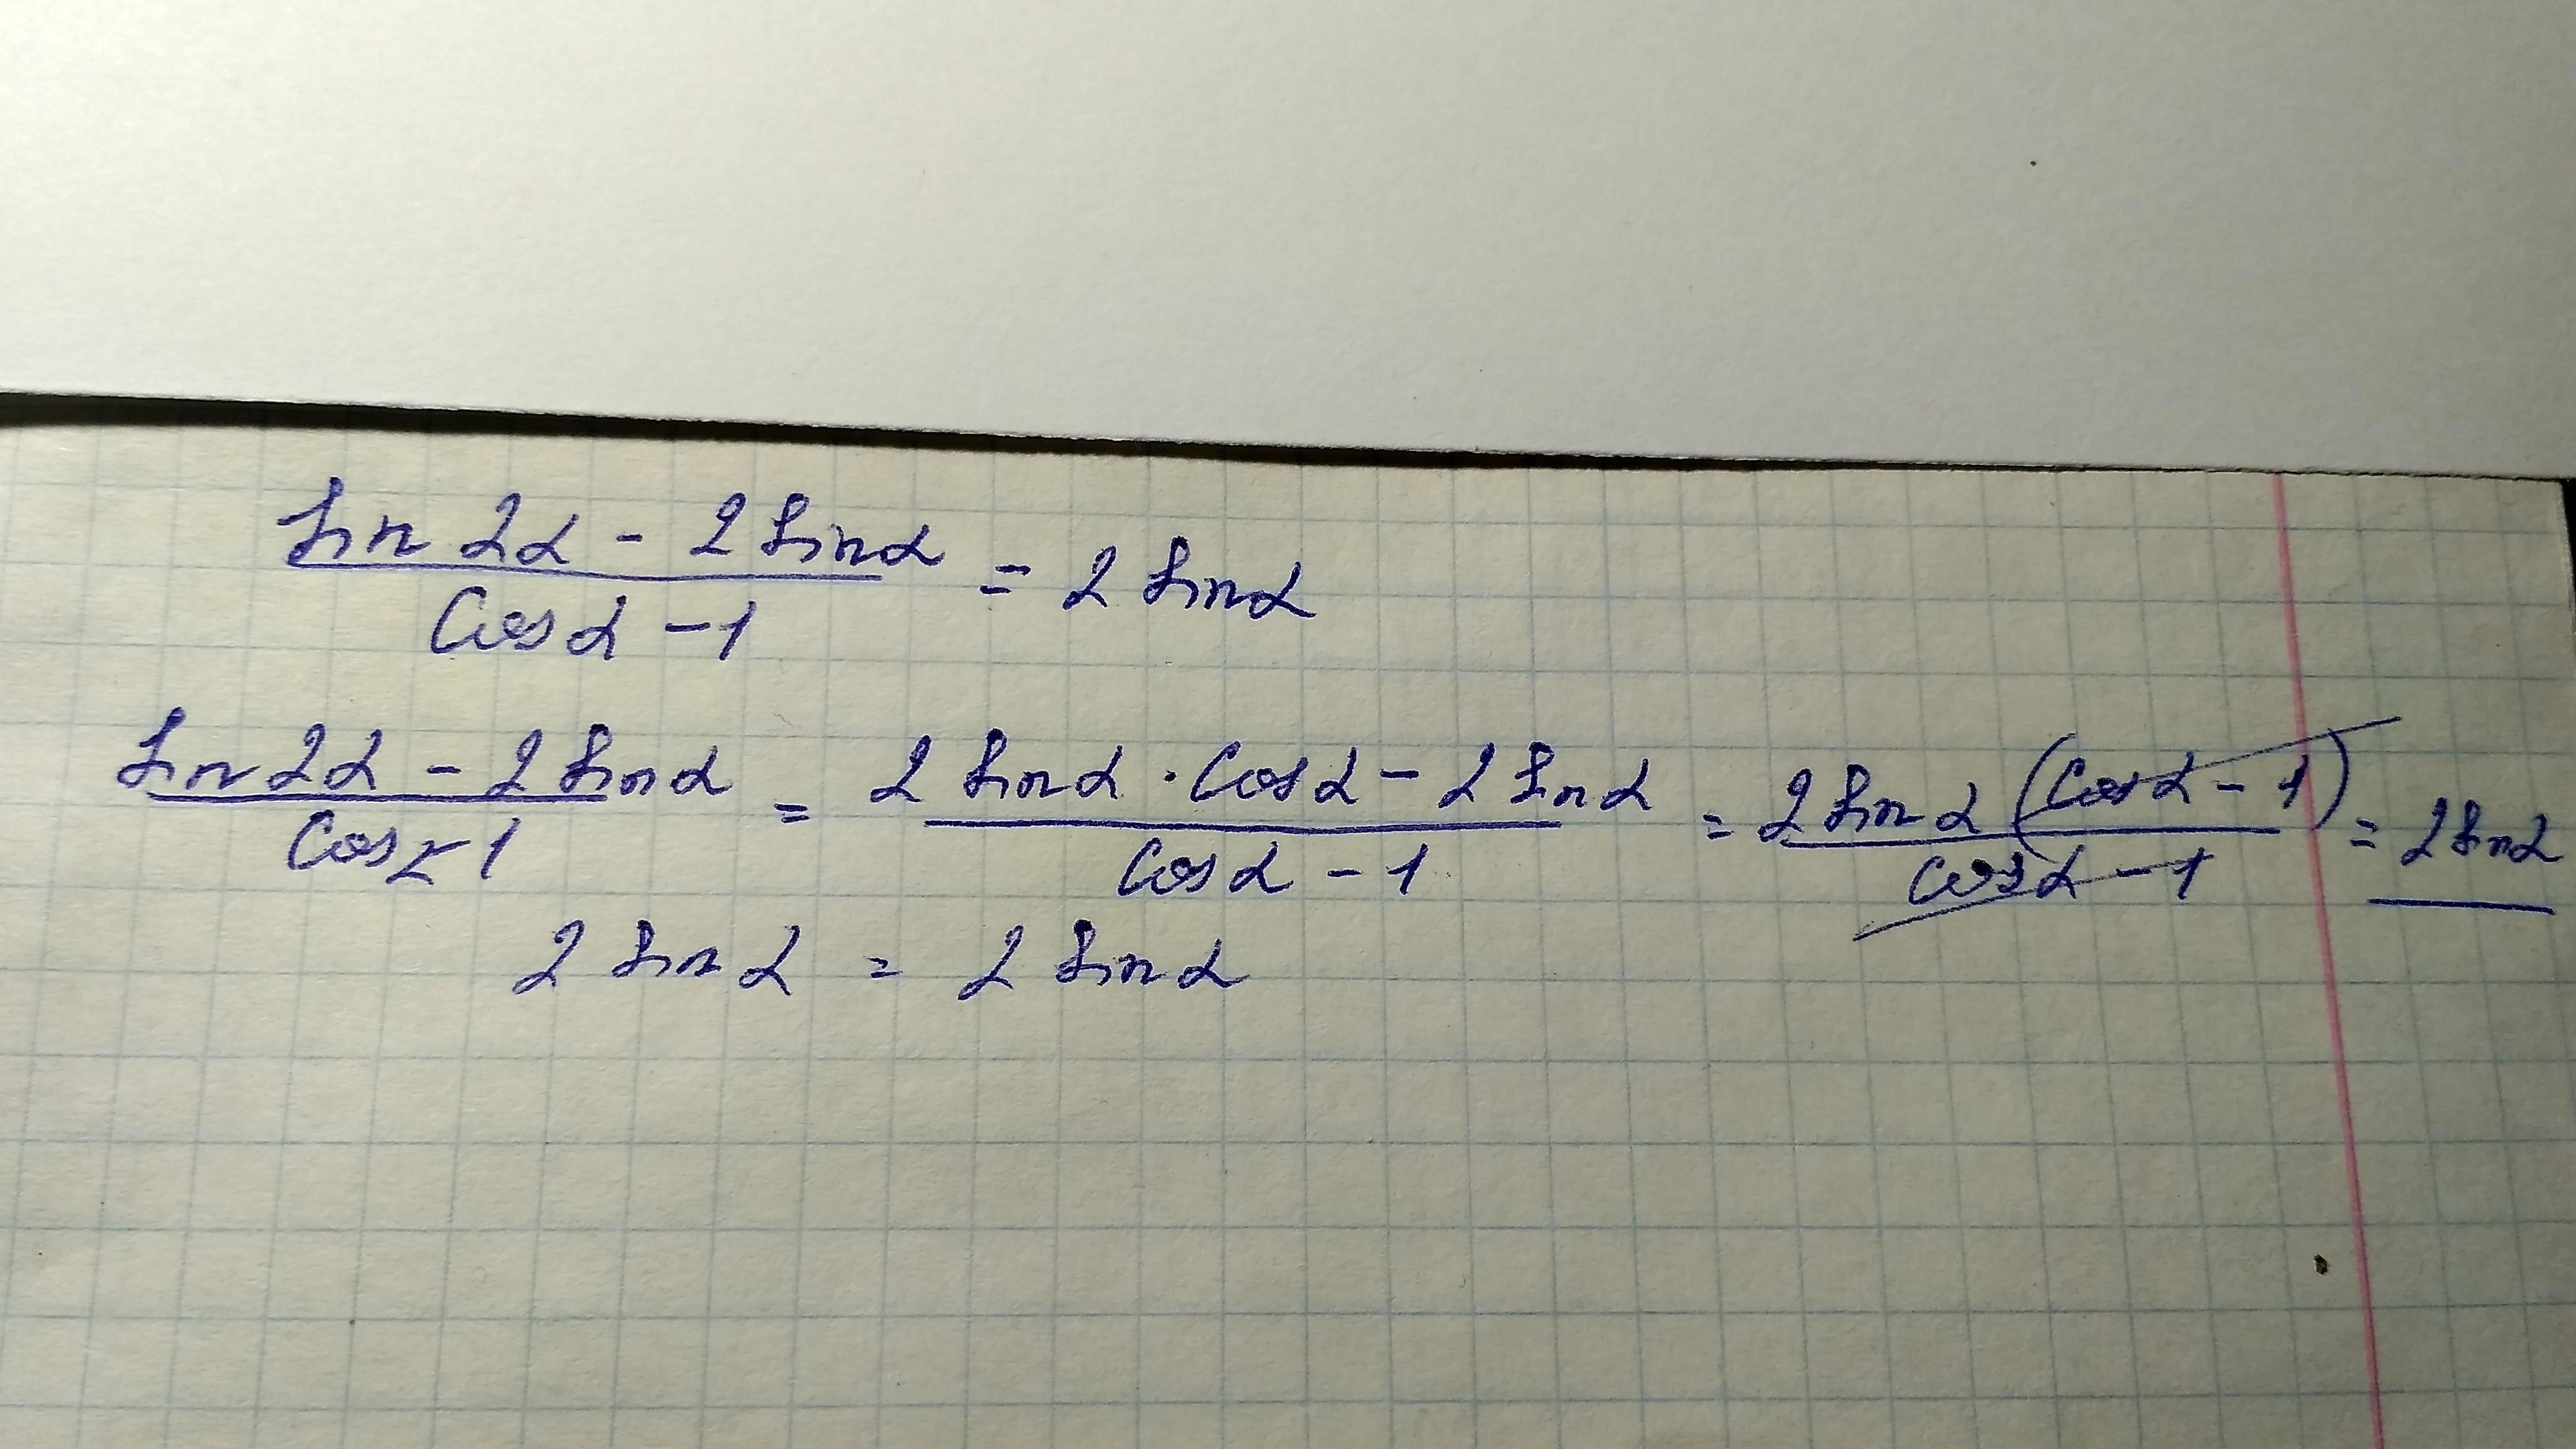 (sin 2α - 2 sin α)/(cos α - 1) = 2 sin α
(sin 2α - 2 sin α)/(cos α - 1) = (2 sin α · cos α - 2 sin α)/(cos α - 1) = (2 sin α (cos α - 1))/(cos α - 1) = 2 sin α
2 sin α = 2 sin α